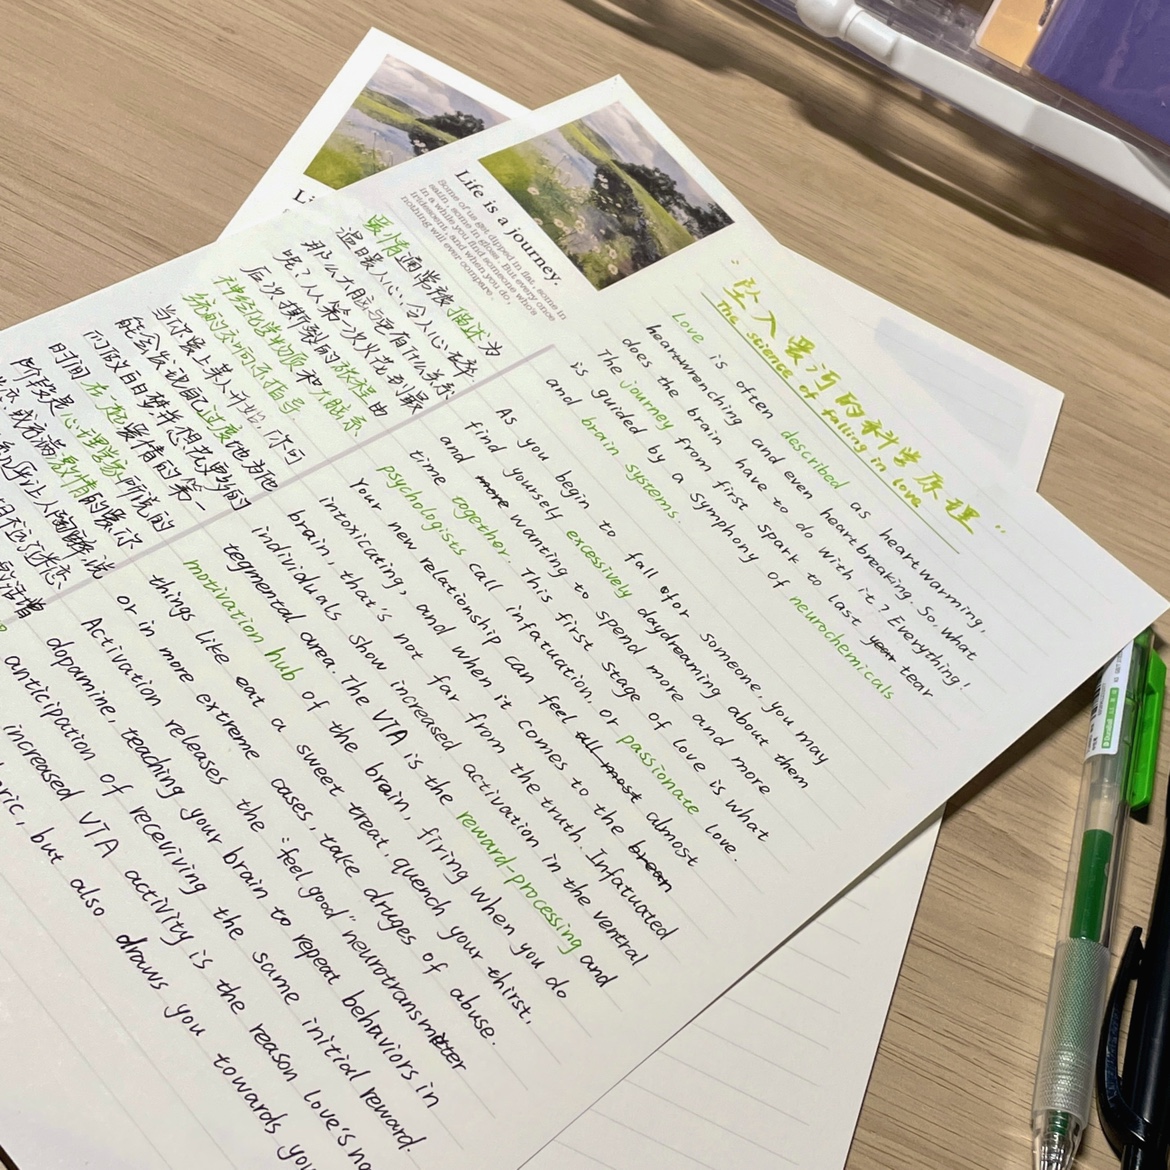 Life is a journey.
Some of us get dipped in flat, some in
satin, some in gloss. But every once
in a while you find someone who's
iridescent, and when you do,
nothing will ever compare.
"坠入爱河的科学原理"
The science of falling in love
Love is often described as heartwarming,
heartwrenching and even heartbreaking. So, what
does the brain have to do with it? Everything!
The journey from first spark to last year tear
is guided by a symphony of neurochemicals
and brain systems.
As you begin to fall for someone, you may
find yourself excessively daydreaming about them
and more wanting to spend more and more
time together. This first stage of love is what
psychologists call infatuation, or passionate love.
Your new relationship can feel all most almost
intoxicating, and when it comes to the brean
brain, that's not far from the truth. Infatuated
individuals show increased activation in the ventral
tegmental area. The VTA is the reward-processing and
motivation hub of the brain, firing when you do
things like eat a sweet treat, quench your thirst,
or in more extreme cases, take druges of abuse.
Activation releases the "feel good" neurotransmitter
dopamine, teaching your brain to repeat behaviors in
anticipation of receiving the same initial reward.
increased VTA activity is the reason love's no
but also draws you towards you
爱情通常被描述为
温暖人心,令人心碎.
那么大脑与它有什么关系
呢?从第一次火花到最
后一次撕裂的旅程由
神经化学物质和大脑系
统的交响乐指导
当你爱上某人开始,你可
能会发现自己过度地为他
们做白日梦并想花更多的
时间在一起爱情的第一
阶段是心理学家所说的